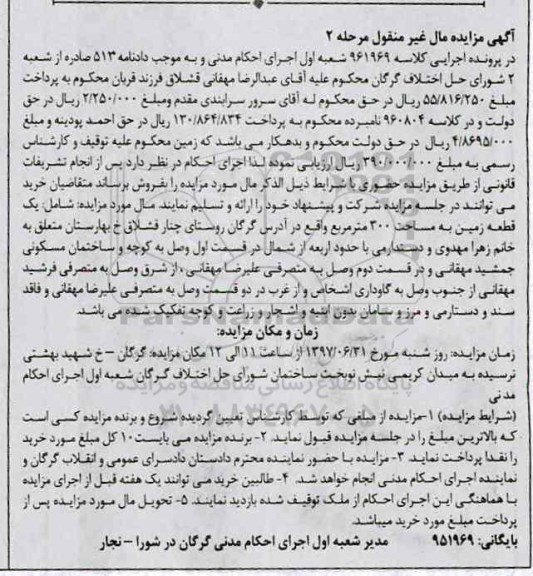 آگهی مزایده مال غیر منقول مرحله ۲
در پرونده اجرایی کلاسه ۹۶۱۹۶۹ شعبه اول اجرای احکام مدنی و به موجب دادنامه ۵۱۳ صادره از شعبه
۲ شورای حل اختلاف گرگان محکوم علیه آقای عبدالرضا مهقانی قشلاق فرزند قربان محکوم به پرداخت
مبلغ ۵۵/۸۱۶/۲۵۰ ریال در حق محکوم له آقای سرور سرابندی مقدم ومبلغ ۲/۲۵۰/۰۰۰ ریال در حق
دولت و در کلاسه ۹۶۰۸۰۴ نامبرده محکوم به پرداخت ۱۳۰/۸۶۴/۸۳۴ ریال در حق احمد پودینه و مبلغ
۴/۸۶۹۵/۰۰۰ ریال در حق دولت محکوم و بدهکار می باشد که زمین محکوم علیه توقیف و کارشناس
رسمی به مبلغ ۳۹۰/۰۰۰/۰۰۰ ریال ارزیابی نموده لذا اجرای احکام در نظر دارد پس از انجام تشریفات
قانونی از طریق مزایده حضوری با شرایط ذیل الذکر مال مورد مزایده را بفروش برساند متقاضیان خرید
می توانند در جلسه مزایده شرکت و پیشنهاد خود را ارائه و تسلیم نمایند. مال مورد مزایده: شامل: یک
قطعه زمین به مساحت ۳۰۰ مترمربع واقع در آدرس گرگان روستای چنار قشلاق خ بهارستان متعلق به
خانم زهرا مهدوی و دستدارمی با حدود اربعه از شمال در قسمت اول وصل به کوچه و ساختمان مسکونی
جمشید مهقانی و در قسمت دوم وصل به متصرفی علیرضا مهقانی، از شرق وصل به متصرفی فرشید
مهقانی از جنوب وصل به گاوداری اشخاص و از غرب در دو قسمت وصل به متصرفی علیرضا مهقانی و فاقد
سند و دستارمی و مرز و سامان بدون ابنیه و اشجار و زراعت و کوچه تفکیک شده می باشد.
زمان و مکان مزایده:
زمان مزایده: روز شنبه مورخ ۱۳۹۷/۰۶/۳۱ از ساعت ۱۱ الی ۱۲ مکان مزایده: گرگان – خ شهید بهشتی
نرسیده به میدان کریمی نبش نوبخت ساختمان شورای حل اختلاف گرگان شعبه اول اجرای احکام
مدنی
(شرایط مزایده) ۱-مزایده از مبلغی که توسط کارشناس تعیین گردیده شروع و برنده مزایده کسی است
که بالاترین مبلغ را در جلسه مزایده قبول نماید. ۲- برنده مزایده می بایست ۱۰ کل مبلغ مورد خرید
را نقدا پرداخت نماید. ۳- مزایده با حضور نماینده محترم دادستان دادسرای عمومی و انقلاب گرگان و
نماینده اجرای احکام مدنی انجام خواهد شد. ۴- طالبین خرید می توانند یک هفته قبل از اجرای مزایده
با هماهنگی این اجرای احکام از ملک توقیف شده بازدید نمایند. ۵- تحویل مال مورد مزایده پس از
پرداخت مبلغ مورد خرید میباشد.
بایگانی: ۹۵۱۹۶۹ مدیر شعبه اول اجرای احکام مدنی گرگان در شورا – نجار
ParsNamadData
پایگاه اطلاع رسانی مناقصه و مزایده